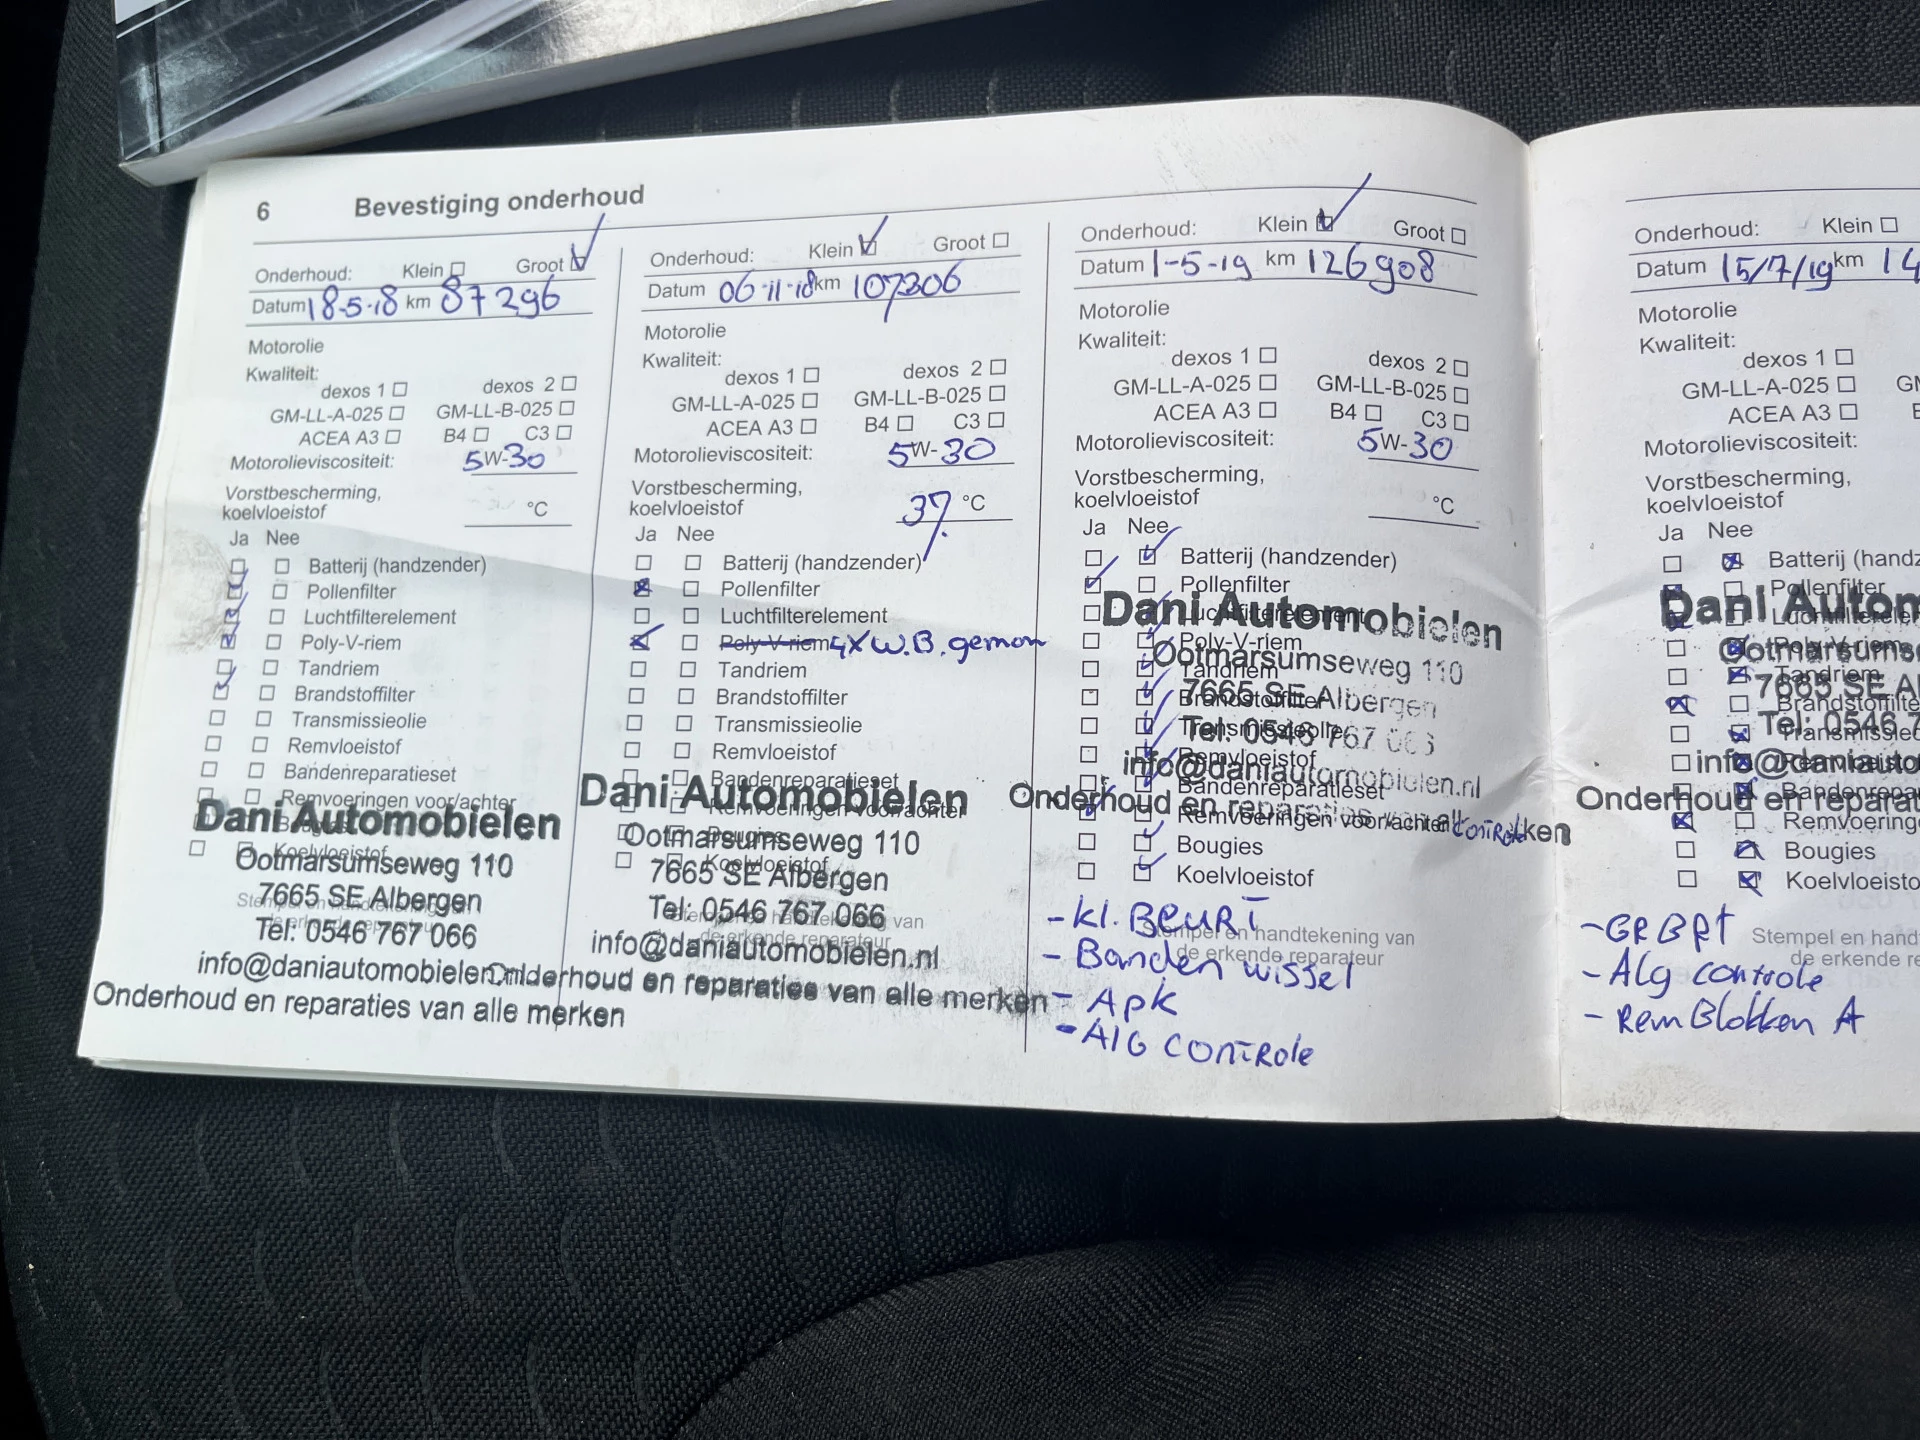 6 Bevestiging onderhoud
Onderhoud: Klein Groot
Datum 18-5-18 km 87296
Motorolie
Kwaliteit:
dexos 1 dexos 2
GM-LL-A-025 GM-LL-B-025
ACEA A3 B4 C3
Motorolieviscositeit: 5W-30
Vorstbescherming,
koelvloeistof °C
Ja Nee
Batterij (handzender)
Pollenfilter
Luchtfilterelement
Poly-V-riem
Tandriem
Brandstoffilter
Transmissieolie
Remvloeistof
Bandenreparatieset
Remvoeringen voor/achter
Bougies
Koelvloeistof
Dani Automobielen
Ootmarsumseweg 110
7665 SE Albergen
Tel: 0546 767 066
info@daniautomobielen.nl
Onderhoud en reparaties van alle merken
Stempel en handtekening van
de erkende reparateur
Onderhoud: Klein Groot
Datum 06-11-18 km 107306
Motorolie
Kwaliteit:
dexos 1 dexos 2
GM-LL-A-025 GM-LL-B-025
ACEA A3 B4 C3
Motorolieviscositeit: 5W-30
Vorstbescherming,
koelvloeistof 37 °C
Ja Nee
Batterij (handzender)
Pollenfilter
Luchtfilterelement
Poly-V-riem 4X W.B. gemon
Tandriem
Brandstoffilter
Transmissieolie
Remvloeistof
Bandenreparatieset
Remvoeringen voor/achter
Bougies
Koelvloeistof
Dani Automobielen
Ootmarsumseweg 110
7665 SE Albergen
Tel: 0546 767 066
info@daniautomobielen.nl
Onderhoud en reparaties van alle merken
Stempel en handtekening van
de erkende reparateur
Onderhoud: Klein Groot
Datum 1-5-19 km 126908
Motorolie
Kwaliteit:
dexos 1 dexos 2
GM-LL-A-025 GM-LL-B-025
ACEA A3 B4 C3
Motorolieviscositeit: 5W-30
Vorstbescherming,
koelvloeistof °C
Ja Nee
Batterij (handzender)
Pollenfilter
Luchtfilterelement
Poly-V-riem
Tandriem
Brandstoffilter
Transmissieolie
Remvloeistof
Bandenreparatieset
Remvoeringen voor/achter controle
Bougies
Koelvloeistof
Dani Automobielen
Ootmarsumseweg 110
7665 SE Albergen
Tel: 0546 767 066
info@daniautomobielen.nl
Onderhoud en reparaties van alle merken
- Kl. BEURT
Stempel en handtekening van
de erkende reparateur
- Banden wissel
- Apk
- AlG CONTROle
Onderhoud: Klein
Datum 15/7/19 km 14
Motorolie
Kwaliteit:
dexos 1
GM-LL-A-025
ACEA A3
Motorolieviscositeit:
Vorstbescherming,
koelvloeistof
Ja Nee
Batterij (handz
Pollenfilter
Luchtfilterelem
Poly-V-riem
Tandriem
Brandstoffilte
Transmissieo
Remvloeistof
Bandenrepara
Remvoeringe
Bougies
Koelvloeisto
Dani Autom
Ootmarsumse
7665 SE Al
Tel: 0546 7
info@daniauto
Onderhoud en reparat
- GR BRT
Stempel en hand
de erkende re
- Alg controle
- Rem Blokken A